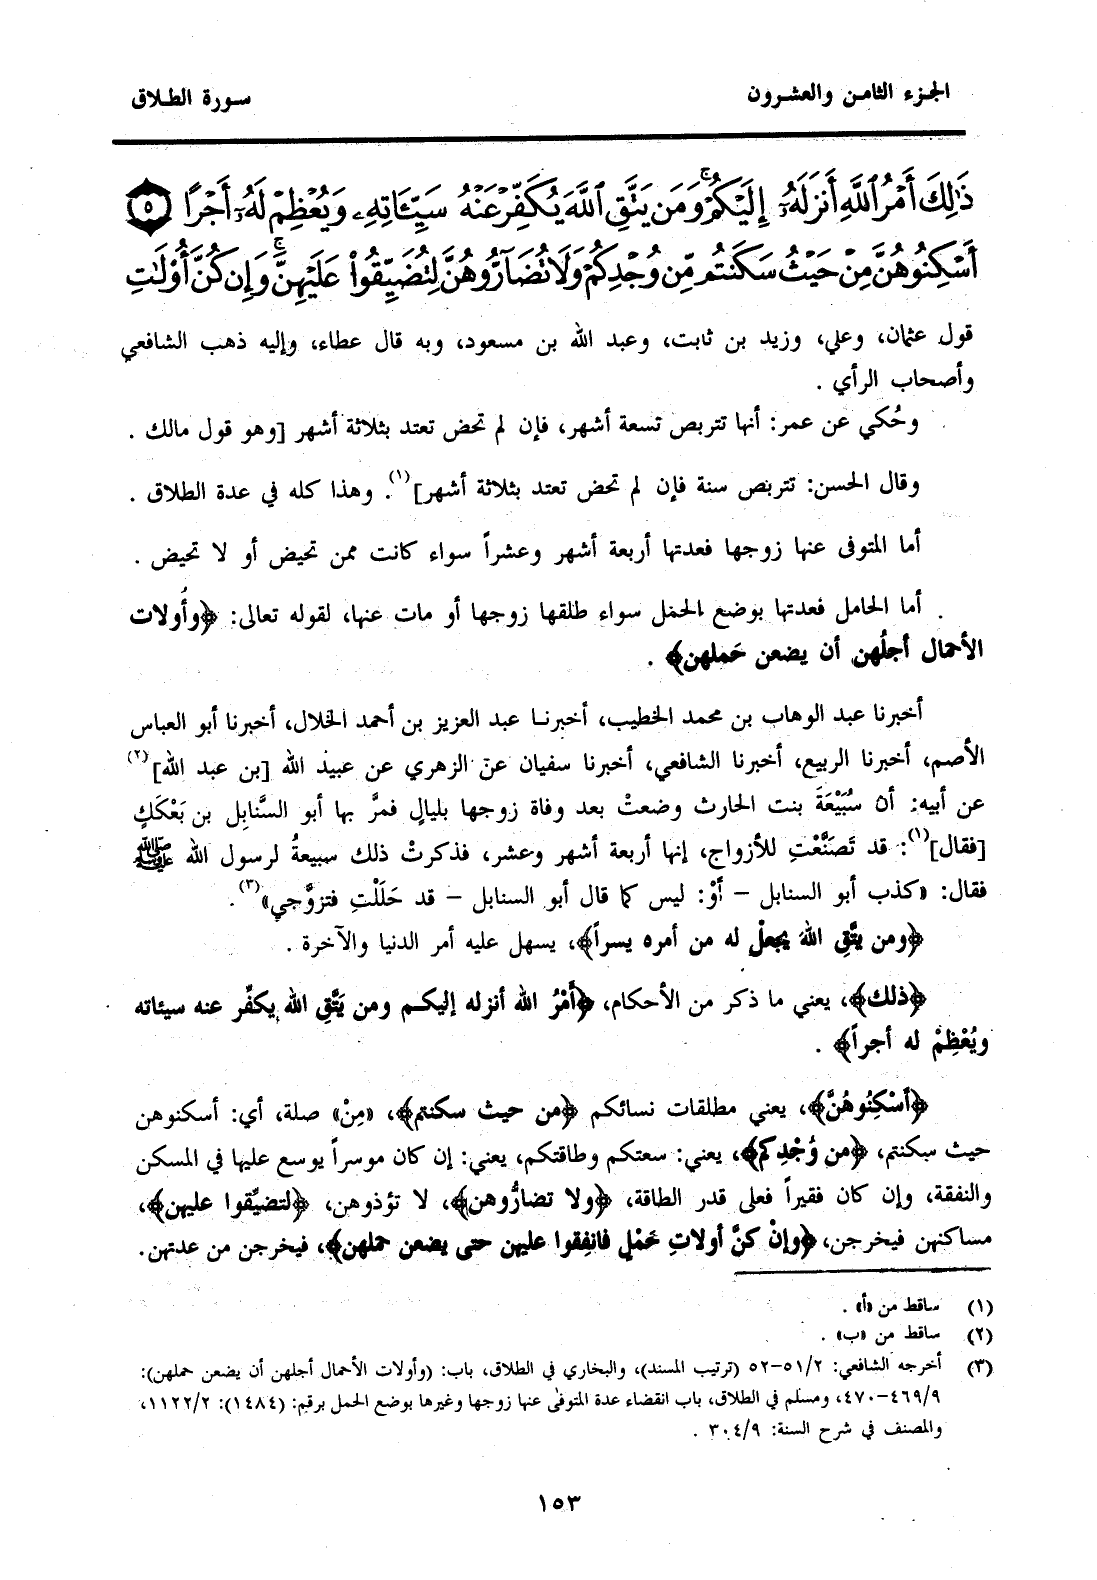 الجزء الثامن والعشرون
سورة الطلاق
ذَٰلِكَ أَمْرُ ٱللَّهِ أَنزَلَهُۥٓ إِلَيْكُمْ ۚ وَمَن يَتَّقِ ٱللَّهَ يُكَفِّرْ عَنْهُ سَيِّـَٔاتِهِۦ وَيُعْظِمْ لَهُۥٓ أَجْرًا ٥
أَسْكِنُوهُنَّ مِنْ حَيْثُ سَكَنتُم مِّن وُجْدِكُمْ وَلَا تُضَآرُّوهُنَّ لِتُضَيِّقُوا۟ عَلَيْهِنَّ ۚ وَإِن كُنَّ أُو۟لَٰتِ
قول عثمان، وعلي، وزيد بن ثابت، وعبد الله بن مسعود، وبه قال عطاء، وإليه ذهب الشافعي
وأصحاب الرأي .
وحُكي عن عمر: أنها تتربص تسعة أشهر، فإن لم تحض تعتد بثلاثة أشهر [وهو قول مالك .
وقال الحسن: تتربص سنة فإن لم تحض تعتد بثلاثة أشهر](١). وهذا كله في عدة الطلاق .
أما المتوفى عنها زوجها فعدتها أربعة أشهر وعشراً سواء كانت ممن تحيض أو لا تحيض .
أما الحامل فعدتها بوضع الحمل سواء طلقها زوجها أو مات عنها، لقوله تعالى: ﴿وأُولات
الأحمال أجلُهن أن يضعن حَملهن﴾ .
أخبرنا عبد الوهاب بن محمد الخطيب، أخبرنا عبد العزيز بن أحمد الخلال، أخبرنا أبو العباس
الأصم، أخبرنا الربيع، أخبرنا الشافعي، أخبرنا سفيان عن الزهري عن عبيد الله [بن عبد الله](٢)
عن أبيه: أن سُبَيْعَةَ بنت الحارث وضعتْ بعد وفاة زوجها بليالٍ فمرَّ بها أبو السَّنابِل بن بَعْكَكٍ
[فقال](١): قد تَصَنَّعْتِ للأزواج، إنها أربعة أشهر وعشر، فذكرتْ ذلك سبيعةُ لرسول الله ﷺ
فقال: «كذب أبو السنابل – أوْ: ليس كما قال أبو السنابل – قد حَلَلْتِ فتزوَّجي»(٣).
﴿ومن يتَّقِ اللهَ يجعلْ له من أمره يسراً﴾، يسهل عليه أمر الدنيا والآخرة .
﴿ذلك﴾، يعني ما ذكر من الأحكام، ﴿أَمْرُ الله أنزله إليكم ومن يَتَّقِ الله يكفِّر عنه سيئاته
ويُعْظِمْ له أجراً﴾ .
﴿أَسْكِنُوهُنَّ﴾، يعني مطلقات نسائكم ﴿من حيث سكنتم﴾، «مِنْ» صلة، أي: أسكنوهن
حيث سكنتم، ﴿من وُجْدِكم﴾، يعني: سعتكم وطاقتكم، يعني: إن كان موسراً يوسع عليها في المسكن
والنفقة، وإن كان فقيراً فعلى قدر الطاقة، ﴿ولا تضارُّوهن﴾، لا تؤذوهن، ﴿لتضيِّقوا عليهن﴾،
مساكنهن فيخرجن، ﴿وإنْ كنَّ أولاتِ حَمْلٍ فانفِقوا عليهن حتى يضعن حملهن﴾، فيخرجن من عدتهن.
(١) ساقط من «أ» .
(٢) ساقط من «ب» .
(٣) أخرجه الشافعي: ٢/٥١-٥٢ (ترتيب المسند)، والبخاري في الطلاق، باب: (وأولات الأحمال أجلهن أن يضعن حملهن):
٩/٤٦٩-٤٧٠، ومسلم في الطلاق، باب انقضاء عدة المتوفى عنها زوجها وغيرها بوضع الحمل برقم: (١٤٨٤): ٢/١١٢٢،
والمصنف في شرح السنة: ٩/٣٠٤ .
١٥٣